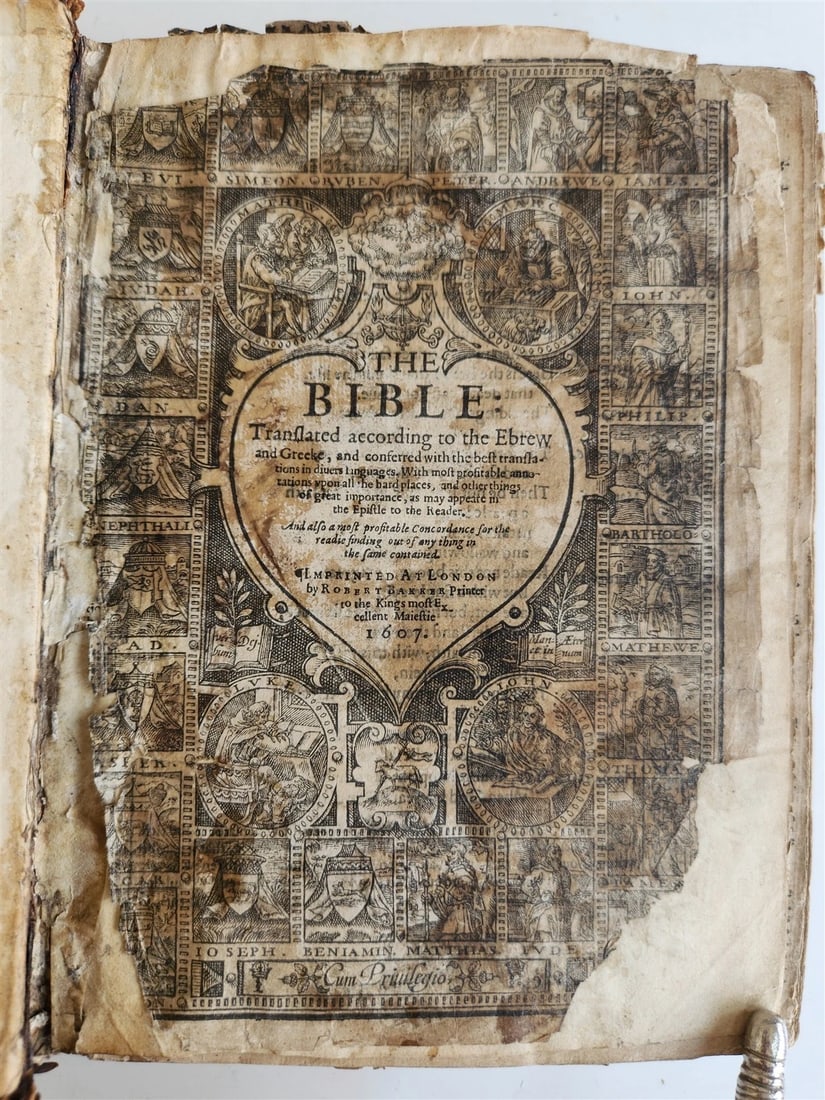 LEVI. SIMEON. RVBEN. PETER. ANDREWE. IAMES.
MATHEV. MARC
IVDAH. IOHN.
DAN. PHILIP.
NEPHTHALI. BARTHOLO.
AD. MATHEWE.
SHER. THOMA
THE
BIBLE
Tranſlated according to the Ebrew
and Greeke, and conferred with the beſt tranſla-
tions in diuers languages. With moſt profitable anno-
tations vpon all the hard places, and other things
of great importance, as may appeare in
the Epiſtle to the Reader.
And alſo a moſt profitable Concordance for the
readie finding out of any thing in
the ſame contained.
¶IMPRINTED AT LONDON
by ROBERT BARKER Printer
to the Kings moſt Ex
cellent Maieſtie
1607.
Ver- Dej-
bum
Man- Æter-
et in num
LVKE. IOHN
IOSEPH. BENIAMIN. MATTHIAS. IVDE
Cum Priuilegio.